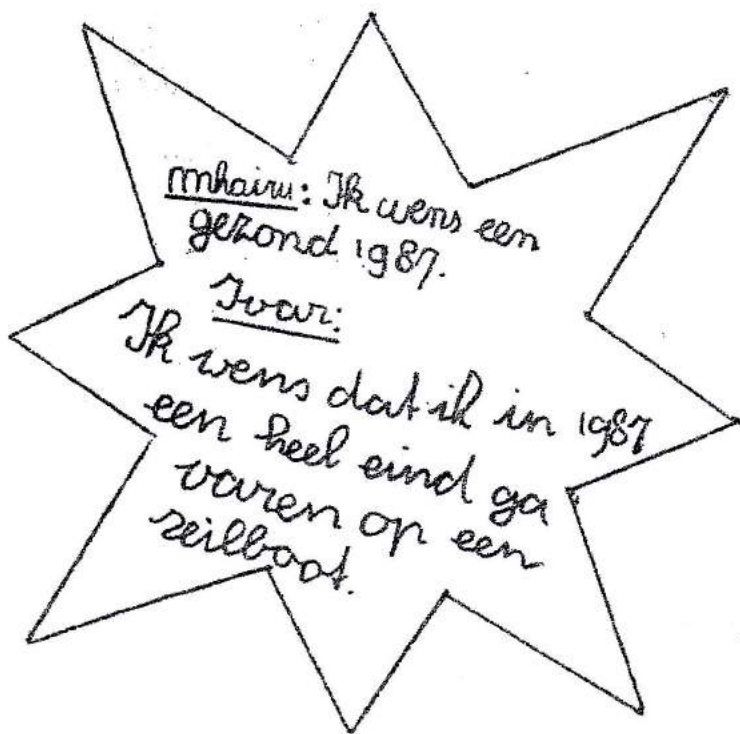 mhairi: Ik wens een
gezond 1987.
Ivar:
Ik wens dat ik in 1987
een heel eind ga
varen op een
zeilboot.